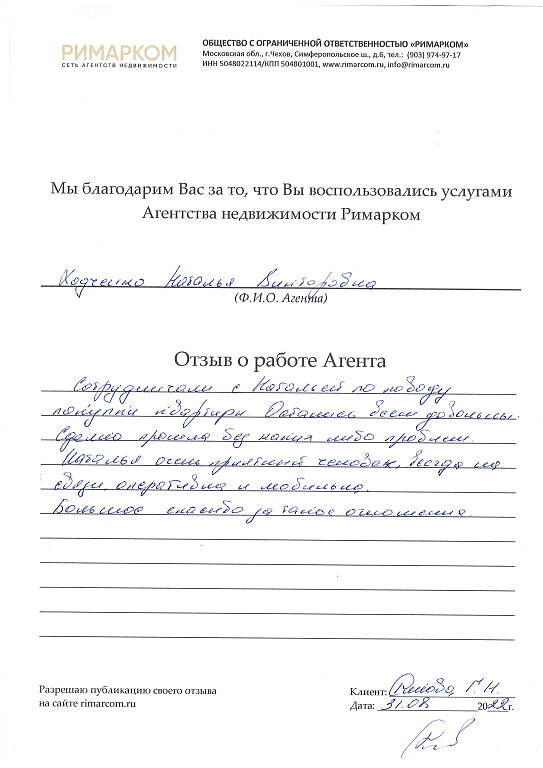 РИМАРКОМ
СЕТЬ АГЕНТСТВ НЕДВИЖИМОСТИ
ОБЩЕСТВО С ОГРАНИЧЕННОЙ ОТВЕТСТВЕННОСТЬЮ «РИМАРКОМ»
Московская обл., г.Чехов, Симферопольское ш., д.6, тел.: (903) 974-97-17
ИНН 5048022114/КПП 504801001, www.rimarcom.ru, info@rimarcom.ru
Мы благодарим Вас за то, что Вы воспользовались услугами
Агентства недвижимости Римарком
Ходченко Наталья Викторовна
(Ф.И.О. Агента)
Отзыв о работе Агента
Сотрудничали с Натальей по поводу
покупки квартиры Остались всем довольны.
Сделка прошла без каких либо проблем.
Наталья очень приятный человек, всегда на
связи, оперативна и мобильна.
Большое спасибо за такое отношение.
Разрешаю публикацию своего отзыва
на сайте rimarcom.ru
Клиент: Г.Н.
Дата: 31.08 2022г.